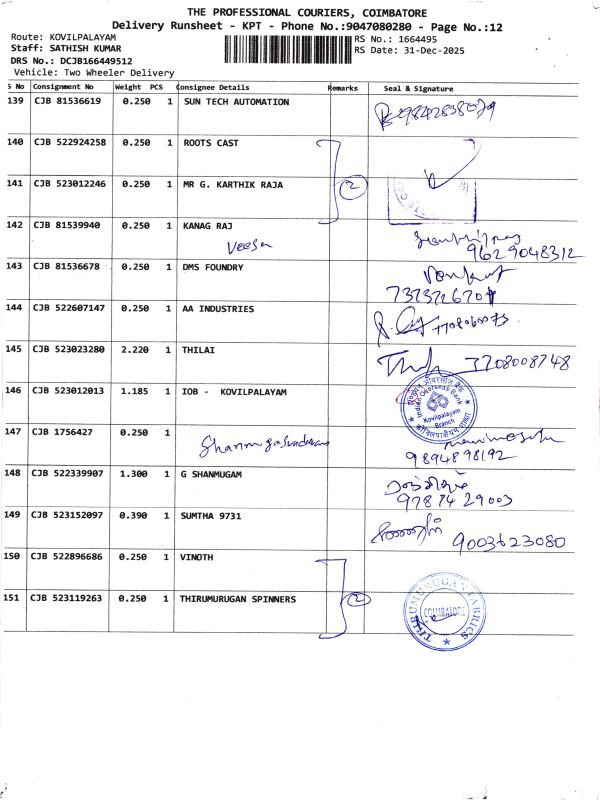 THE PROFESSIONAL COURIERS, COIMBATORE
Delivery Runsheet - KPT - Phone No.:9047080280 - Page No.:12
Route: KOVILPALAYAM
RS No.: 1664495
Staff: SATHISH KUMAR
RS Date: 31-Dec-2025
DRS No.: DCJB166449512
Vehicle: Two Wheeler Delivery
S No Consignment No Weight PCS Consignee Details Remarks Seal & Signature
139 CJB 81536619 0.250 1 SUN TECH AUTOMATION
140 CJB 522924258 0.250 1 ROOTS CAST
141 CJB 523012246 0.250 1 MR G. KARTHIK RAJA 2
142 CJB 81539940 0.250 1 KANAG RAJ
9629048312
143 CJB 81536678 0.250 1 DMS FOUNDRY
144 CJB 522607147 0.250 1 AA INDUSTRIES
145 CJB 523023280 2.220 1 THILAI 7708008748
146 CJB 523012013 1.185 1 IOB - KOVILPALAYAM
Indian Overseas Bank
Kovilpalayam
Branch
147 CJB 1756427 0.250 1
9894898192
148 CJB 522339907 1.300 1 G SHANMUGAM
9787429003
149 CJB 523152097 0.390 1 SUMTHA 9731
9003623080
150 CJB 522896686 0.250 1 VINOTH
151 CJB 523119263 0.250 1 THIRUMURUGAN SPINNERS 2
THIRUMURUGAN FABRICS
COIMBATORE